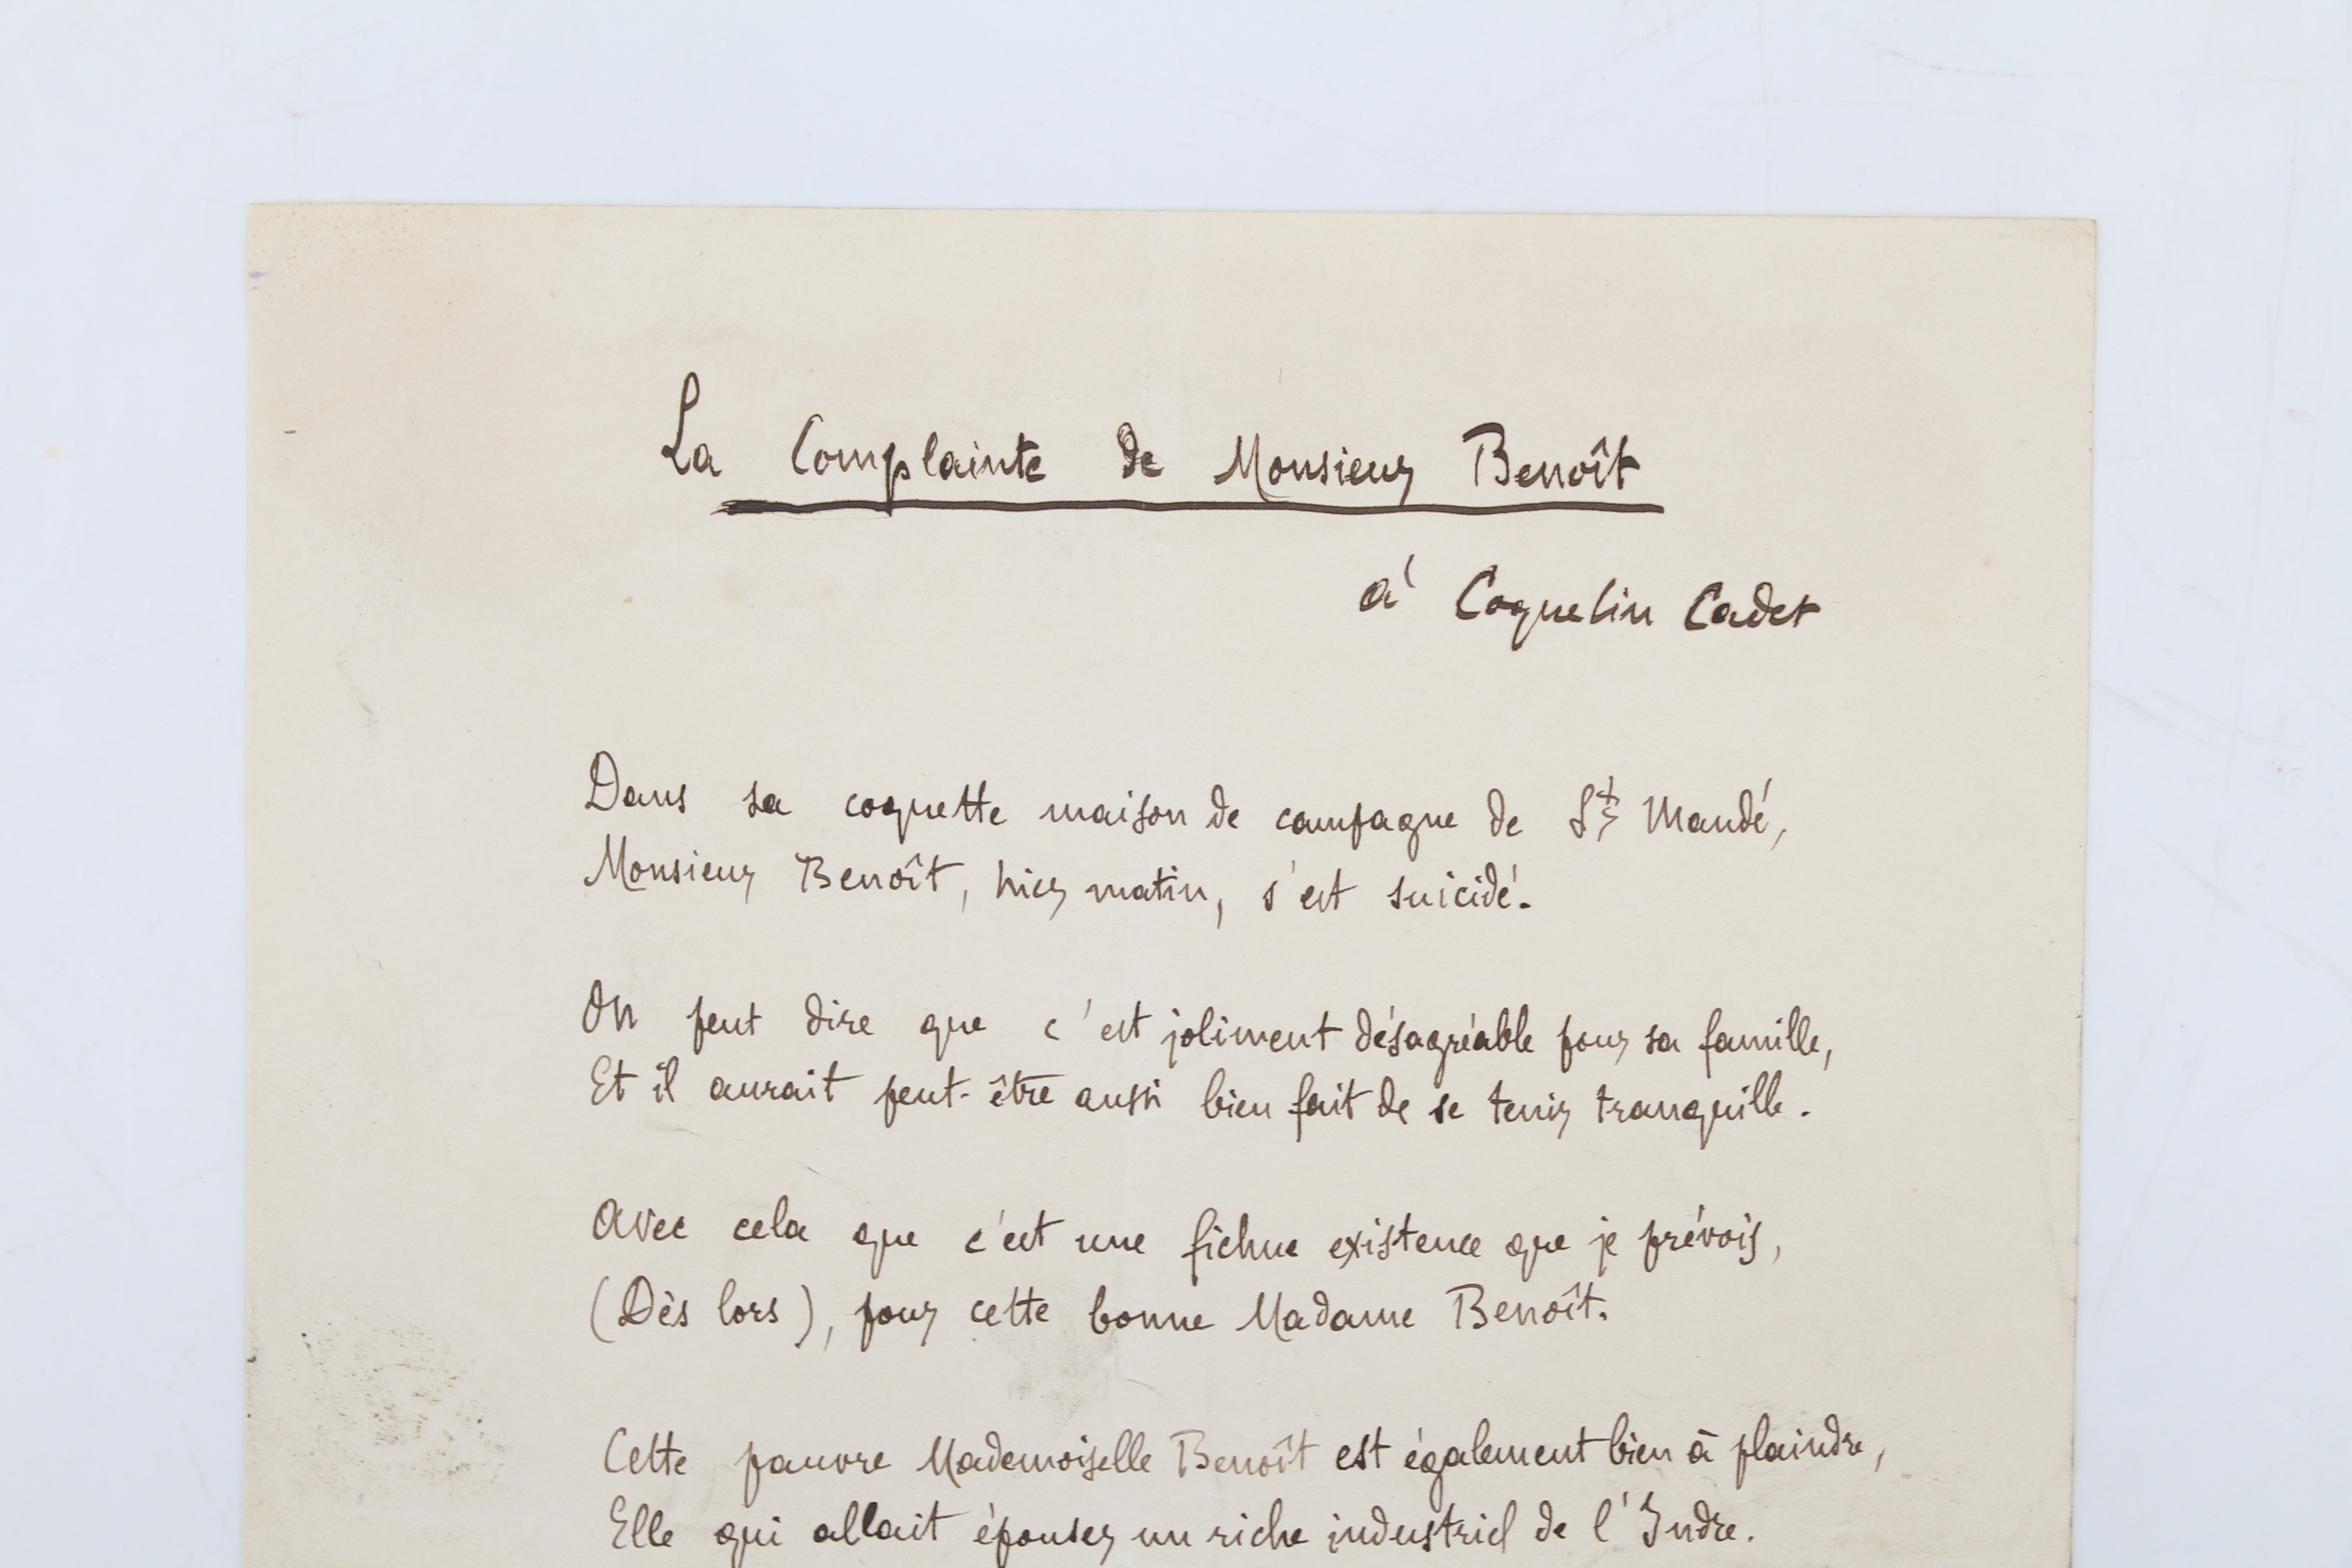 La Complainte de Monsieur Benoît
à Coquelin Cadet
Dans sa coquette maison de campagne de St Mandé,
Monsieur Benoît, hier matin, s'est suicidé.
On peut dire que c'est joliment désagréable pour sa famille,
Et il aurait peut-être aussi bien fait de se tenir tranquille.
Avec cela que c'est une fichue existence que je prévois,
(Dès lors), pour cette bonne Madame Benoît.
Cette pauvre Mademoiselle Benoît est également bien à plaindre,
Elle qui allait épouser un riche industriel de l'Indre.